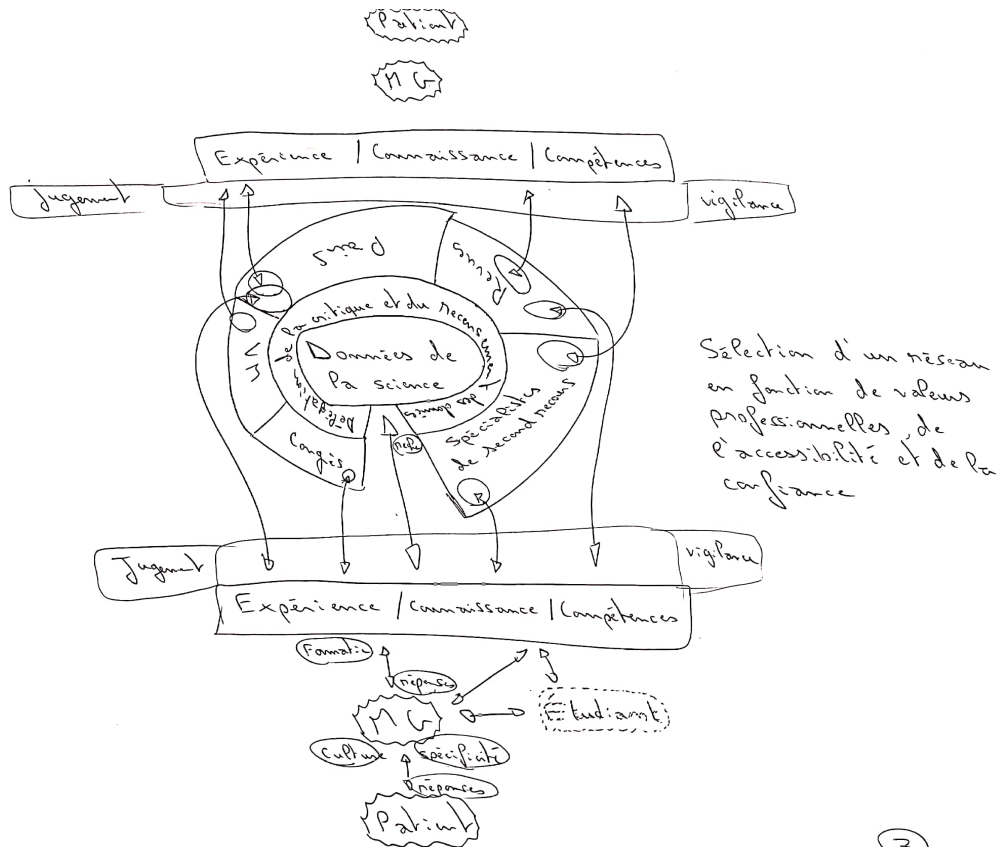 Patient
MG
Expérience | Connaissance | Compétences
jugement
vigilance
Pairs
Revues
Délégation de la critique et du recensement des données
VM
Données de
la science
Spécialistes
de second recours
Congrès
Sélection d'un réseau
en fonction de valeurs
professionnelles, de
l'accessibilité et de la
confiance
Jugement
vigilance
Expérience / Connaissance | Compétences
réponses
MG
Étudiant
Culture
spécificité
réponses
Patient
3